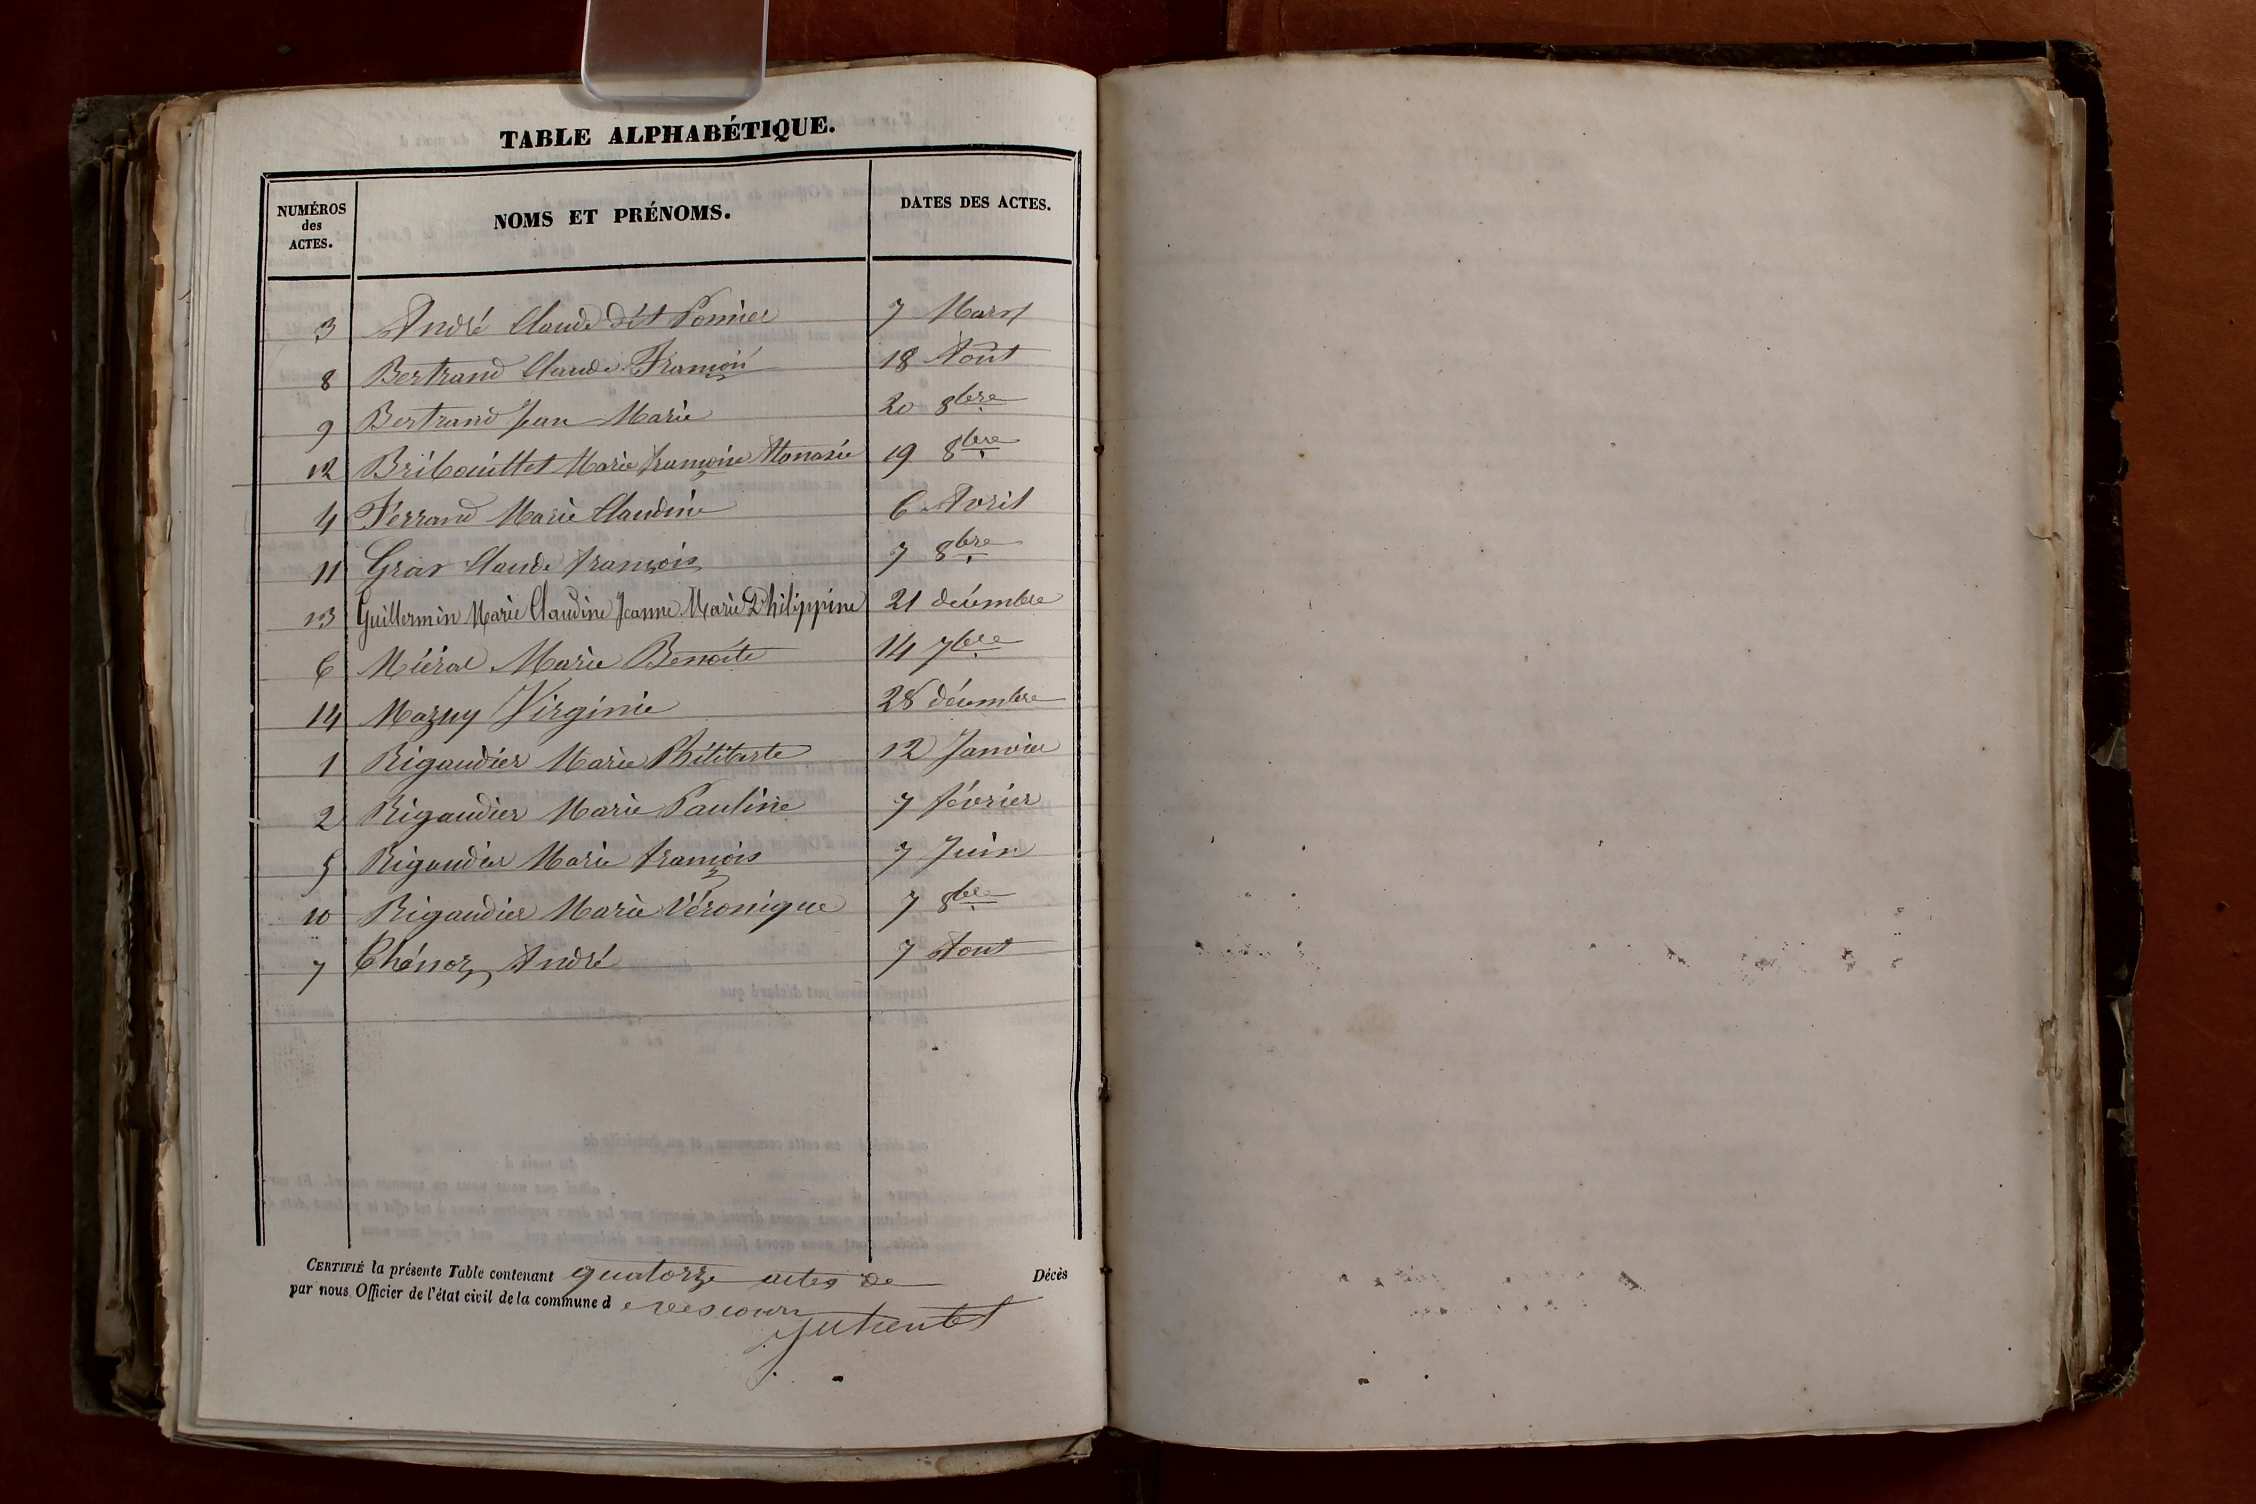 TABLE ALPHABÉTIQUE.
NUMÉROS des ACTES. NOMS ET PRÉNOMS. DATES DES ACTES.
3 André Claude dit Ponnier 7 Mars
8 Bertrand Claude François 18 Août
9 Bertrand Jean Marie 20 8bre
12 Bribouillet Marie françoise Atanasie 19 8bre
4 Ferrand Marie Claudine 6 Avril
11 Gras Claude françois 7 8bre
13 Guillermin Marie Claudine Jeanne Marie Philippine 21 décembre
6 Miéral Marie Benoîte 14 7bre
14 Mazuy Virginie 28 décembre
1 Rigaudier Marie 12 Janvier
2 Rigaudier Marie Pauline 7 février
5 Rigaudier Marie françois 7 Juin
10 Rigaudier Marie Véronique 7 8bre
7 André 7 Aout
CERTIFIÉ la présente Table contenant quatorze actes de Décès
par nous Officier de l'état civil de la commune d e vescours